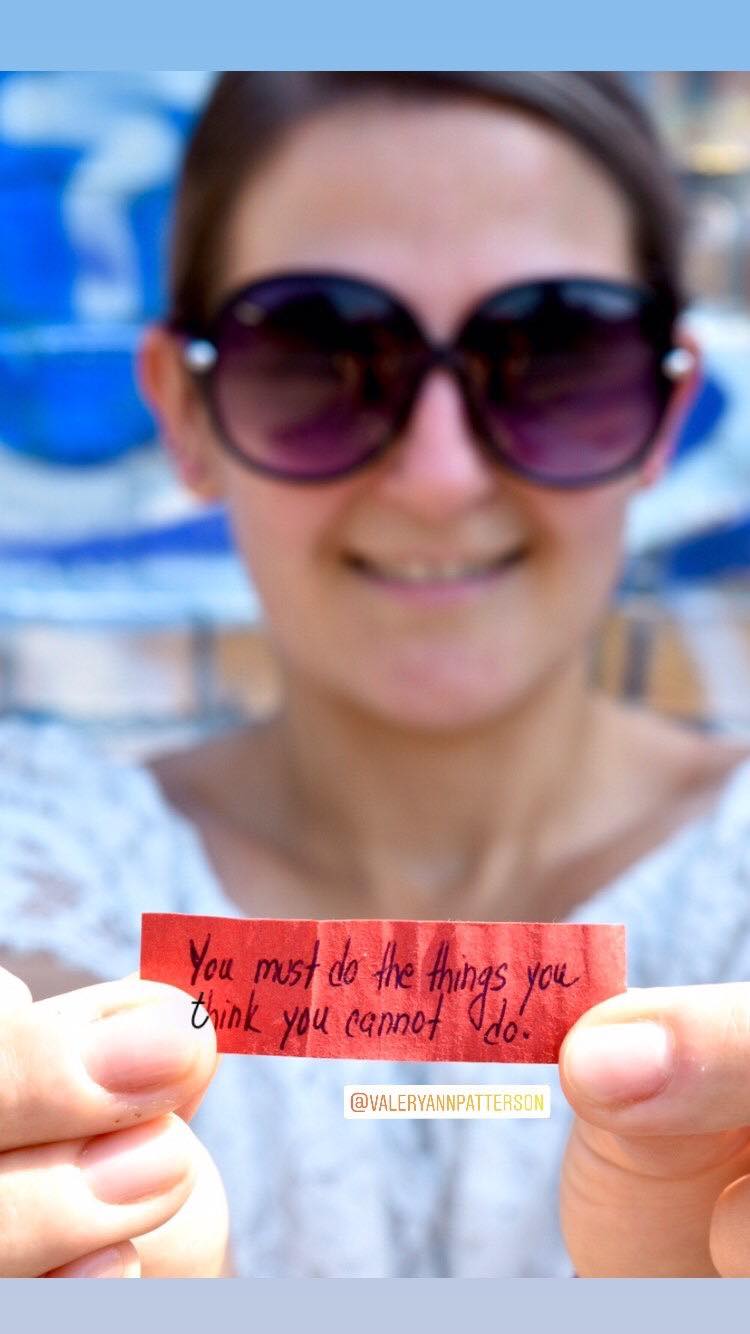 You must do the things you
think you cannot do.
@VALERYANNPATTERSON